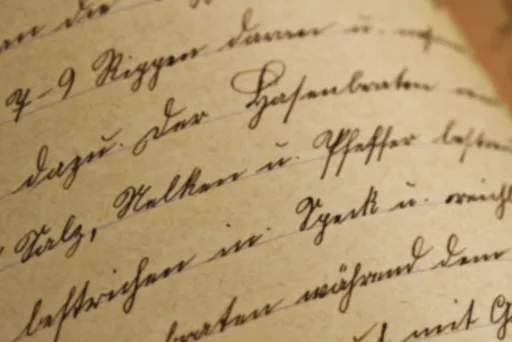 die
7-9 Rippen daran u.
dazu. Der Hasenbraten
Salz, Nelken u. Pfeffer
bestrichen in Speck u.
braten während dem
mit